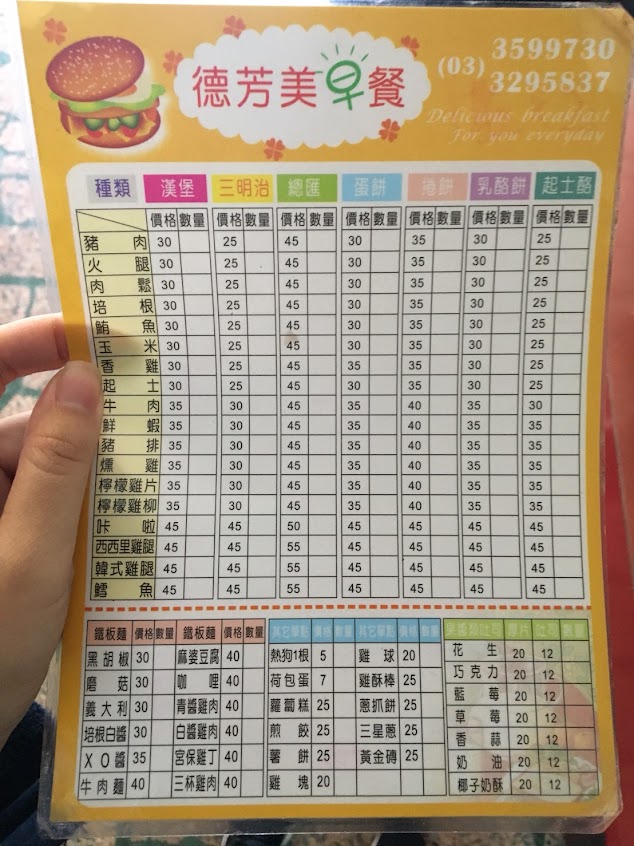 德芳美早餐
(03) 3599730
3295837
Delicious breakfast
For you everyday
種類 漢堡 三明治 總匯 蛋餅 捲餅 乳酪餅 起士酪
價格 數量 價格 數量 價格 數量 價格 數量 價格 數量 價格 數量 價格 數量
豬肉 30 25 45 30 35 30 25
火腿 30 25 45 30 35 30 25
肉鬆 30 25 45 30 35 30 25
培根 30 25 45 30 35 30 25
鮪魚 30 25 45 30 35 30 25
玉米 30 25 45 30 35 30 25
香雞 30 25 45 30 35 30 25
起士 30 25 45 30 35 30 25
牛肉 35 30 45 35 40 35 30
鮮蝦 35 30 45 35 40 35 35
豬排 35 30 45 35 40 35 35
燻雞 35 30 45 35 40 35 35
檸檬雞片 35 30 45 35 40 35 35
檸檬雞柳 35 30 45 35 40 35 35
咔啦 45 45 50 45 45 45 45
西西里雞腿 45 45 55 45 45 45 45
韓式雞腿 45 45 55 45 45 45 45
鱈魚 45 45 55 45 45 45 45
鐵板麵 價格 數量 鐵板麵 價格 數量 其它單點 價格 數量 其它單點 價格 數量 果醬類吐司 厚片 吐司 數量
黑胡椒 30 麻婆豆腐 40 熱狗1根 5 雞球 20 花生 20 12
磨菇 30 咖哩 40 荷包蛋 7 雞酥棒 25 巧克力 20 12
義大利 30 青醬雞肉 40 蘿蔔糕 25 蔥抓餅 25 藍莓 20 12
培根白醬 30 白醬雞肉 40 煎餃 25 三星蔥 25 草莓 20 12
XO醬 35 宮保雞丁 40 薯餅 25 黃金磚 25 香蒜 20 12
牛肉麵 40 三杯雞肉 40 雞塊 20 奶油 20 12
椰子奶酥 20 12